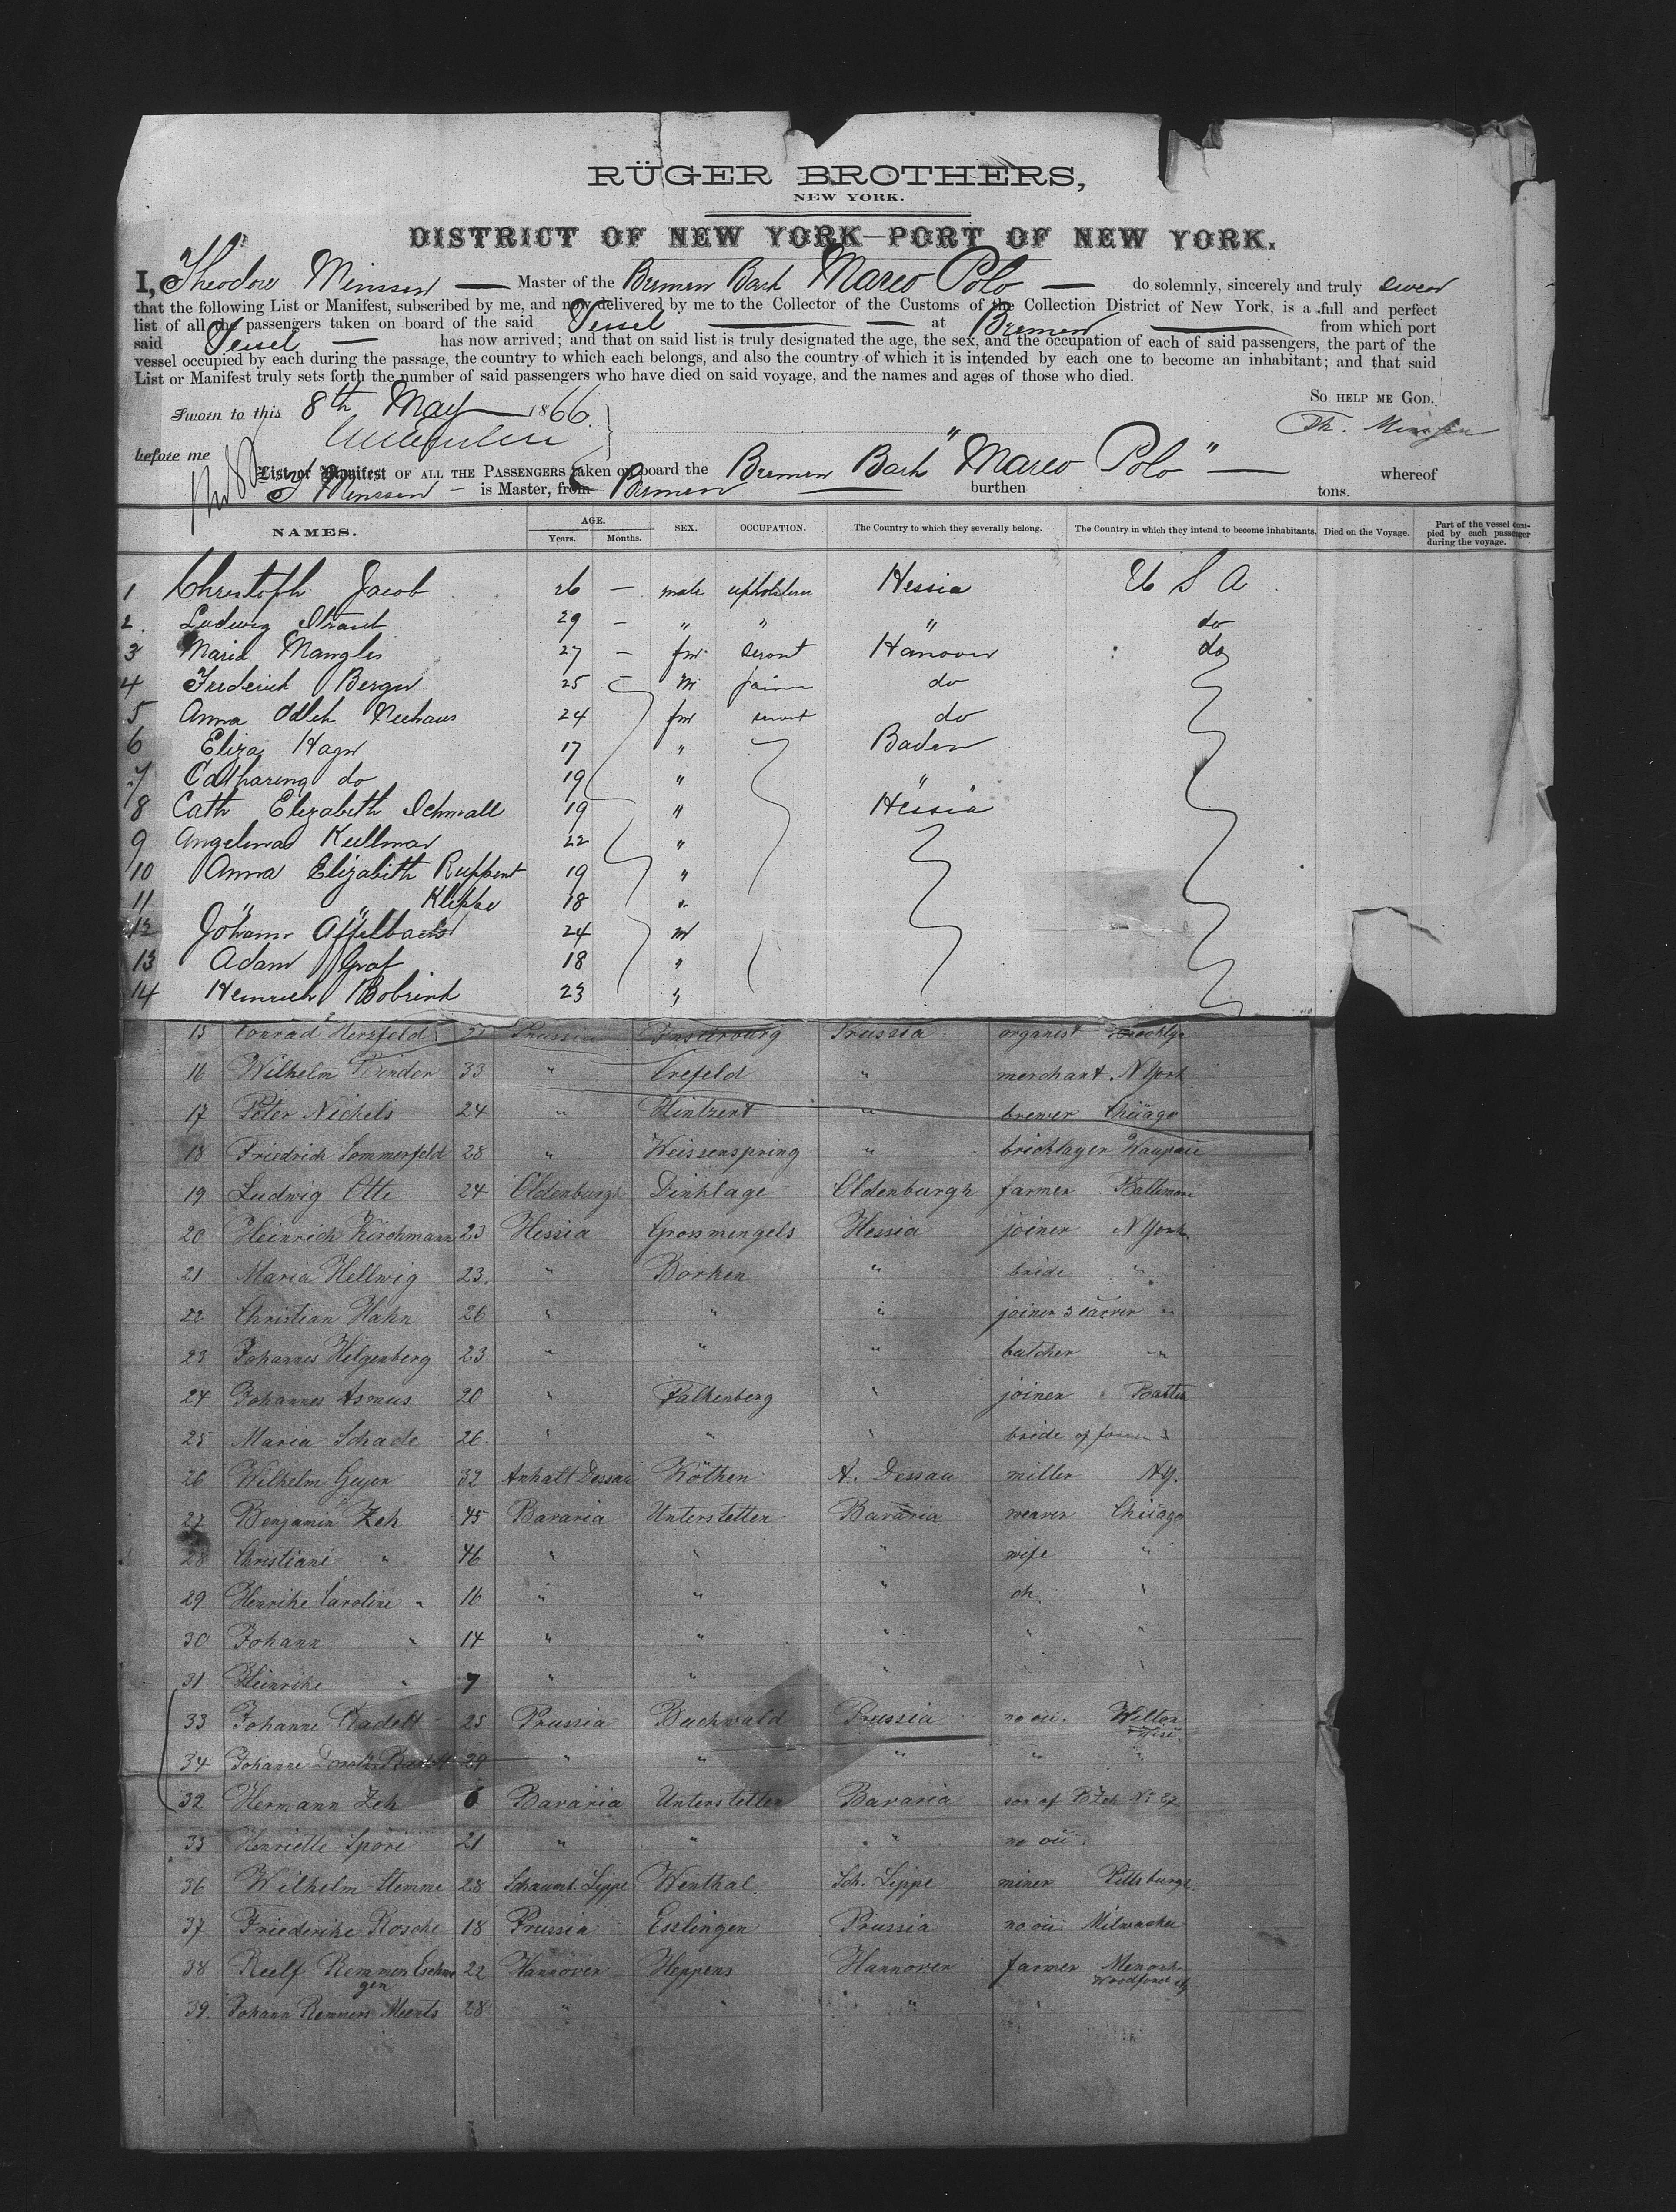 RÜGER BROTHERS,
NEW YORK.
DISTRICT OF NEW YORK—PORT OF NEW YORK.
I, Theodor Minssen — Master of the Bremen Bark Marco Polo — do solemnly, sincerely and truly swear
that the following List or Manifest, subscribed by me, and now delivered by me to the Collector of the Customs of the Collection District of New York, is a full and perfect
list of all the passengers taken on board of the said Vessel — at Bremen — from which port
said Vessel — has now arrived; and that on said list is truly designated the age, the sex, and the occupation of each of said passengers, the part of the
vessel occupied by each during the passage, the country to which each belongs, and also the country of which it is intended by each one to become an inhabitant; and that said
List or Manifest truly sets forth the number of said passengers who have died on said voyage, and the names and ages of those who died.
So help me God.
Sworn to this 8th May 1866.
Th. Minssen
before me
List or Manifest of all the Passengers taken on board the Bremen Bark "Marco Polo" — whereof
Th Minssen — is Master, from Bremen burthen tons.
NAMES. AGE. Years. Months. SEX. OCCUPATION. The Country to which they severally belong. The Country in which they intend to become inhabitants. Died on the Voyage. Part of the vessel occupied by each passenger during the voyage.
1 Christoph Jacob 26 — male upholsterer Hessia U S A
2. Ludwig Straut 29 — " " " do
3 Maria Mangles 27 — fm servt Hanover do
4 Frederich Berger 25 — m joiner do
5 Anna Neuhaus 24 fm servt do
6 Eliza Hager 17 " Baden
7 Catharina do 19 " "
8 Cath Elizabeth Schmall 19 " Hessia
9 Angelina Kullmar 22 "
10 Anna Elizabeth Ruppent 19 "
11 " " Klippe 18 "
12 Johann Affelbach 24 m
13 Adam Graf 18 "
14 Heinrich Bobrink 23 "
15 Conrad Herzfeld Prussia Insterburg Prussia organist Brooklyn
16 Wilhelm Binder 33 " Crefeld " merchant N York
17 Peter Nickels 24 " Hintzert " brewer Chicago
18 Friedrich Sommerfeld 28 " Weissenspring " bricklayer
19 Ludwig Otte 24 Oldenburgh Dinklage Oldenburgh farmer Baltimore
20 Heinrich Kirchmann 23 Hessia Grossmengels Hessia joiner N York
21 Maria Hellwig 23. " Borken " bride "
22 Christian Hahn 26 " " " joiner "
23 Johannes Helgenberg 23 " " " butcher "
24 Johannes Asmus 20 " Falkenberg " joiner
25 Maria Schade 26. " " " bride of
26 Wilhelm Geyer 32 Anhalt Dessau Köthen A. Dessau miller NY.
27 Benjamin Zeh 45 Bavaria Unterstetten Bavaria weaver Chicago
28 Christiane " 46 " " " wife "
29 Henrike Caroline " 16 " " " ch. "
30 Johann " 14 " " " " "
31 Heinrike " 7 " " " " "
33 Johanne Radelt 25 Prussia Buchwald Prussia no occ. Wilton
34 Johanne Doroth. Radelt 29 " " " "
32 Hermann Zeh 6 Bavaria Unterstetten Bavaria son of B Zeh No 27
35 Henriette Spöre 21 " " " no occ.
36 Wilhelm Hemme 28 Schaumb. Lippe Wenthal Sch. Lippe miner Pittsburgh
37 Friederike Rosche 18 Prussia Esslingen Prussia no occ. Milwaukee
38 Reelf Remmers 22 Hannover Heppens Hannover farmer Menonk Woodford
39. Johann Remmers Meents 28 " " " "